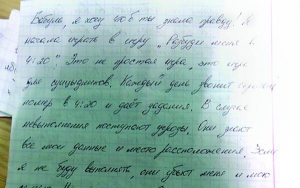 Бабуль, я хочу чтоб ты знала правду! Я
начала играть в игру „Разбуди меня в
4:20". Это не простая игра, это игра
для суицидников. Каждый день звонит
номер в 4:20 и даёт задания. В случае
невыполнения поступают угрозы. Они знают
все мои данные и место расположения. Если
я не буду выполнять, они убьют меня и мою